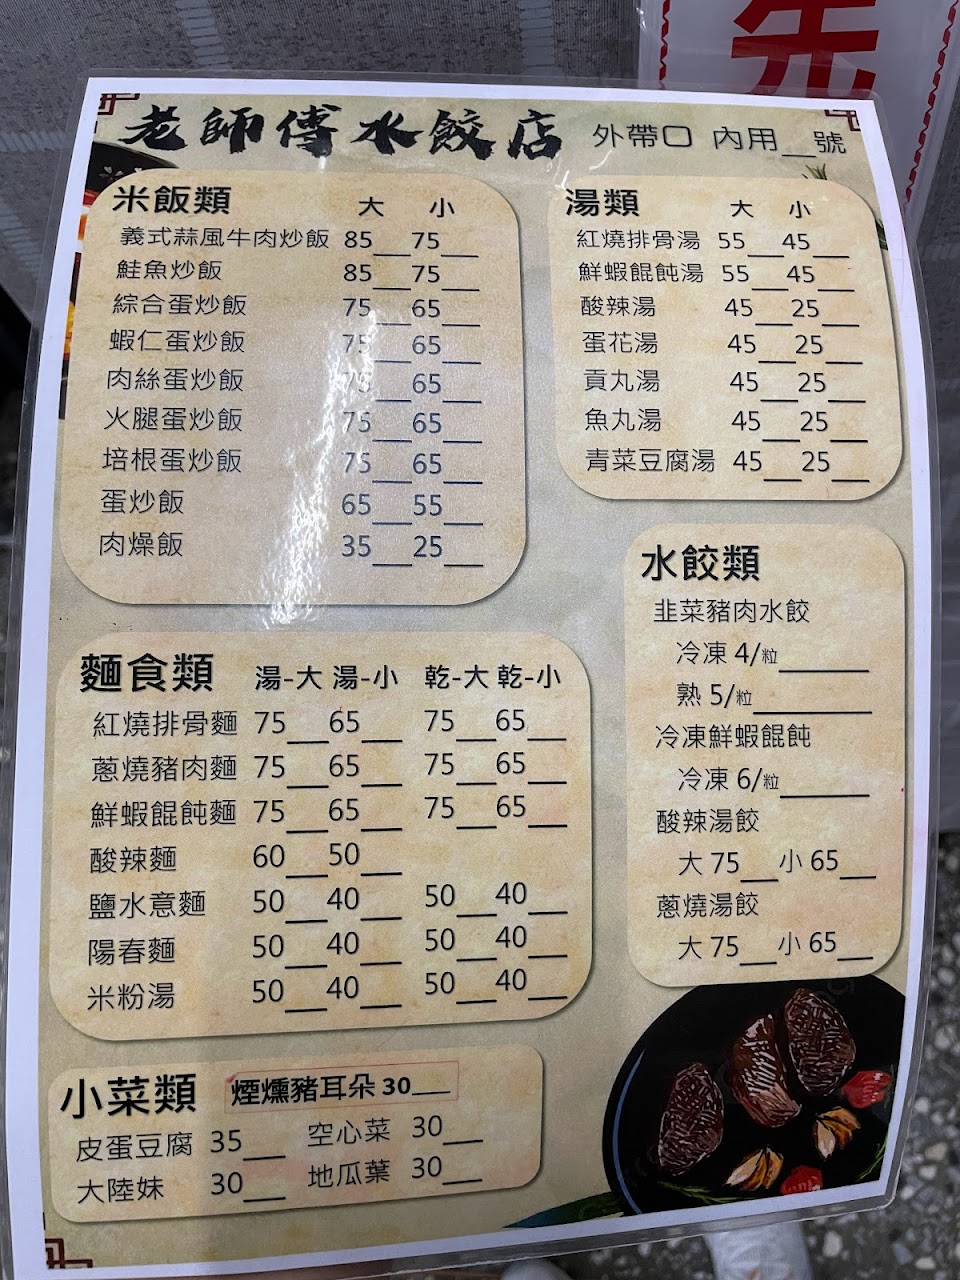 老師傅水餃店 外帶□ 內用__號
米飯類 大 小
義式蒜風牛肉炒飯 85__75__
鮭魚炒飯 85__75__
綜合蛋炒飯 75__65__
蝦仁蛋炒飯 75__65__
肉絲蛋炒飯 75__65__
火腿蛋炒飯 75__65__
培根蛋炒飯 75__65__
蛋炒飯 65__55__
肉燥飯 35__25__
湯類 大 小
紅燒排骨湯 55__45__
鮮蝦餛飩湯 55__45__
酸辣湯 45__25__
蛋花湯 45__25__
貢丸湯 45__25__
魚丸湯 45__25__
青菜豆腐湯 45__25__
水餃類
韭菜豬肉水餃
冷凍 4/粒______
熟 5/粒______
冷凍鮮蝦餛飩
冷凍 6/粒______
酸辣湯餃
大 75__小 65__
蔥燒湯餃
大 75__小 65__
麵食類 湯-大 湯-小 乾-大 乾-小
紅燒排骨麵 75__65__ 75__65__
蔥燒豬肉麵 75__65__ 75__65__
鮮蝦餛飩麵 75__65__ 75__65__
酸辣麵 60__50__
鹽水意麵 50__40__ 50__40__
陽春麵 50__40__ 50__40__
米粉湯 50__40__ 50__40__
小菜類 煙燻豬耳朵 30__
皮蛋豆腐 35__ 空心菜 30__
大陸妹 30__ 地瓜葉 30__